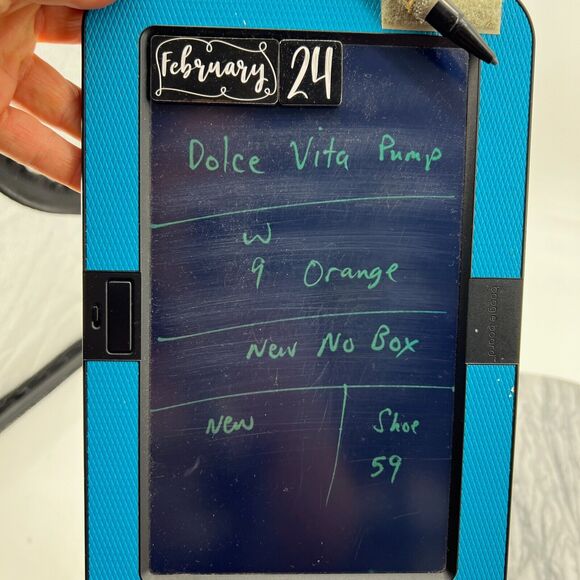 February 24
Dolce Vita Pump
W
9 Orange
New No Box
New
Shoe
59
boogie board